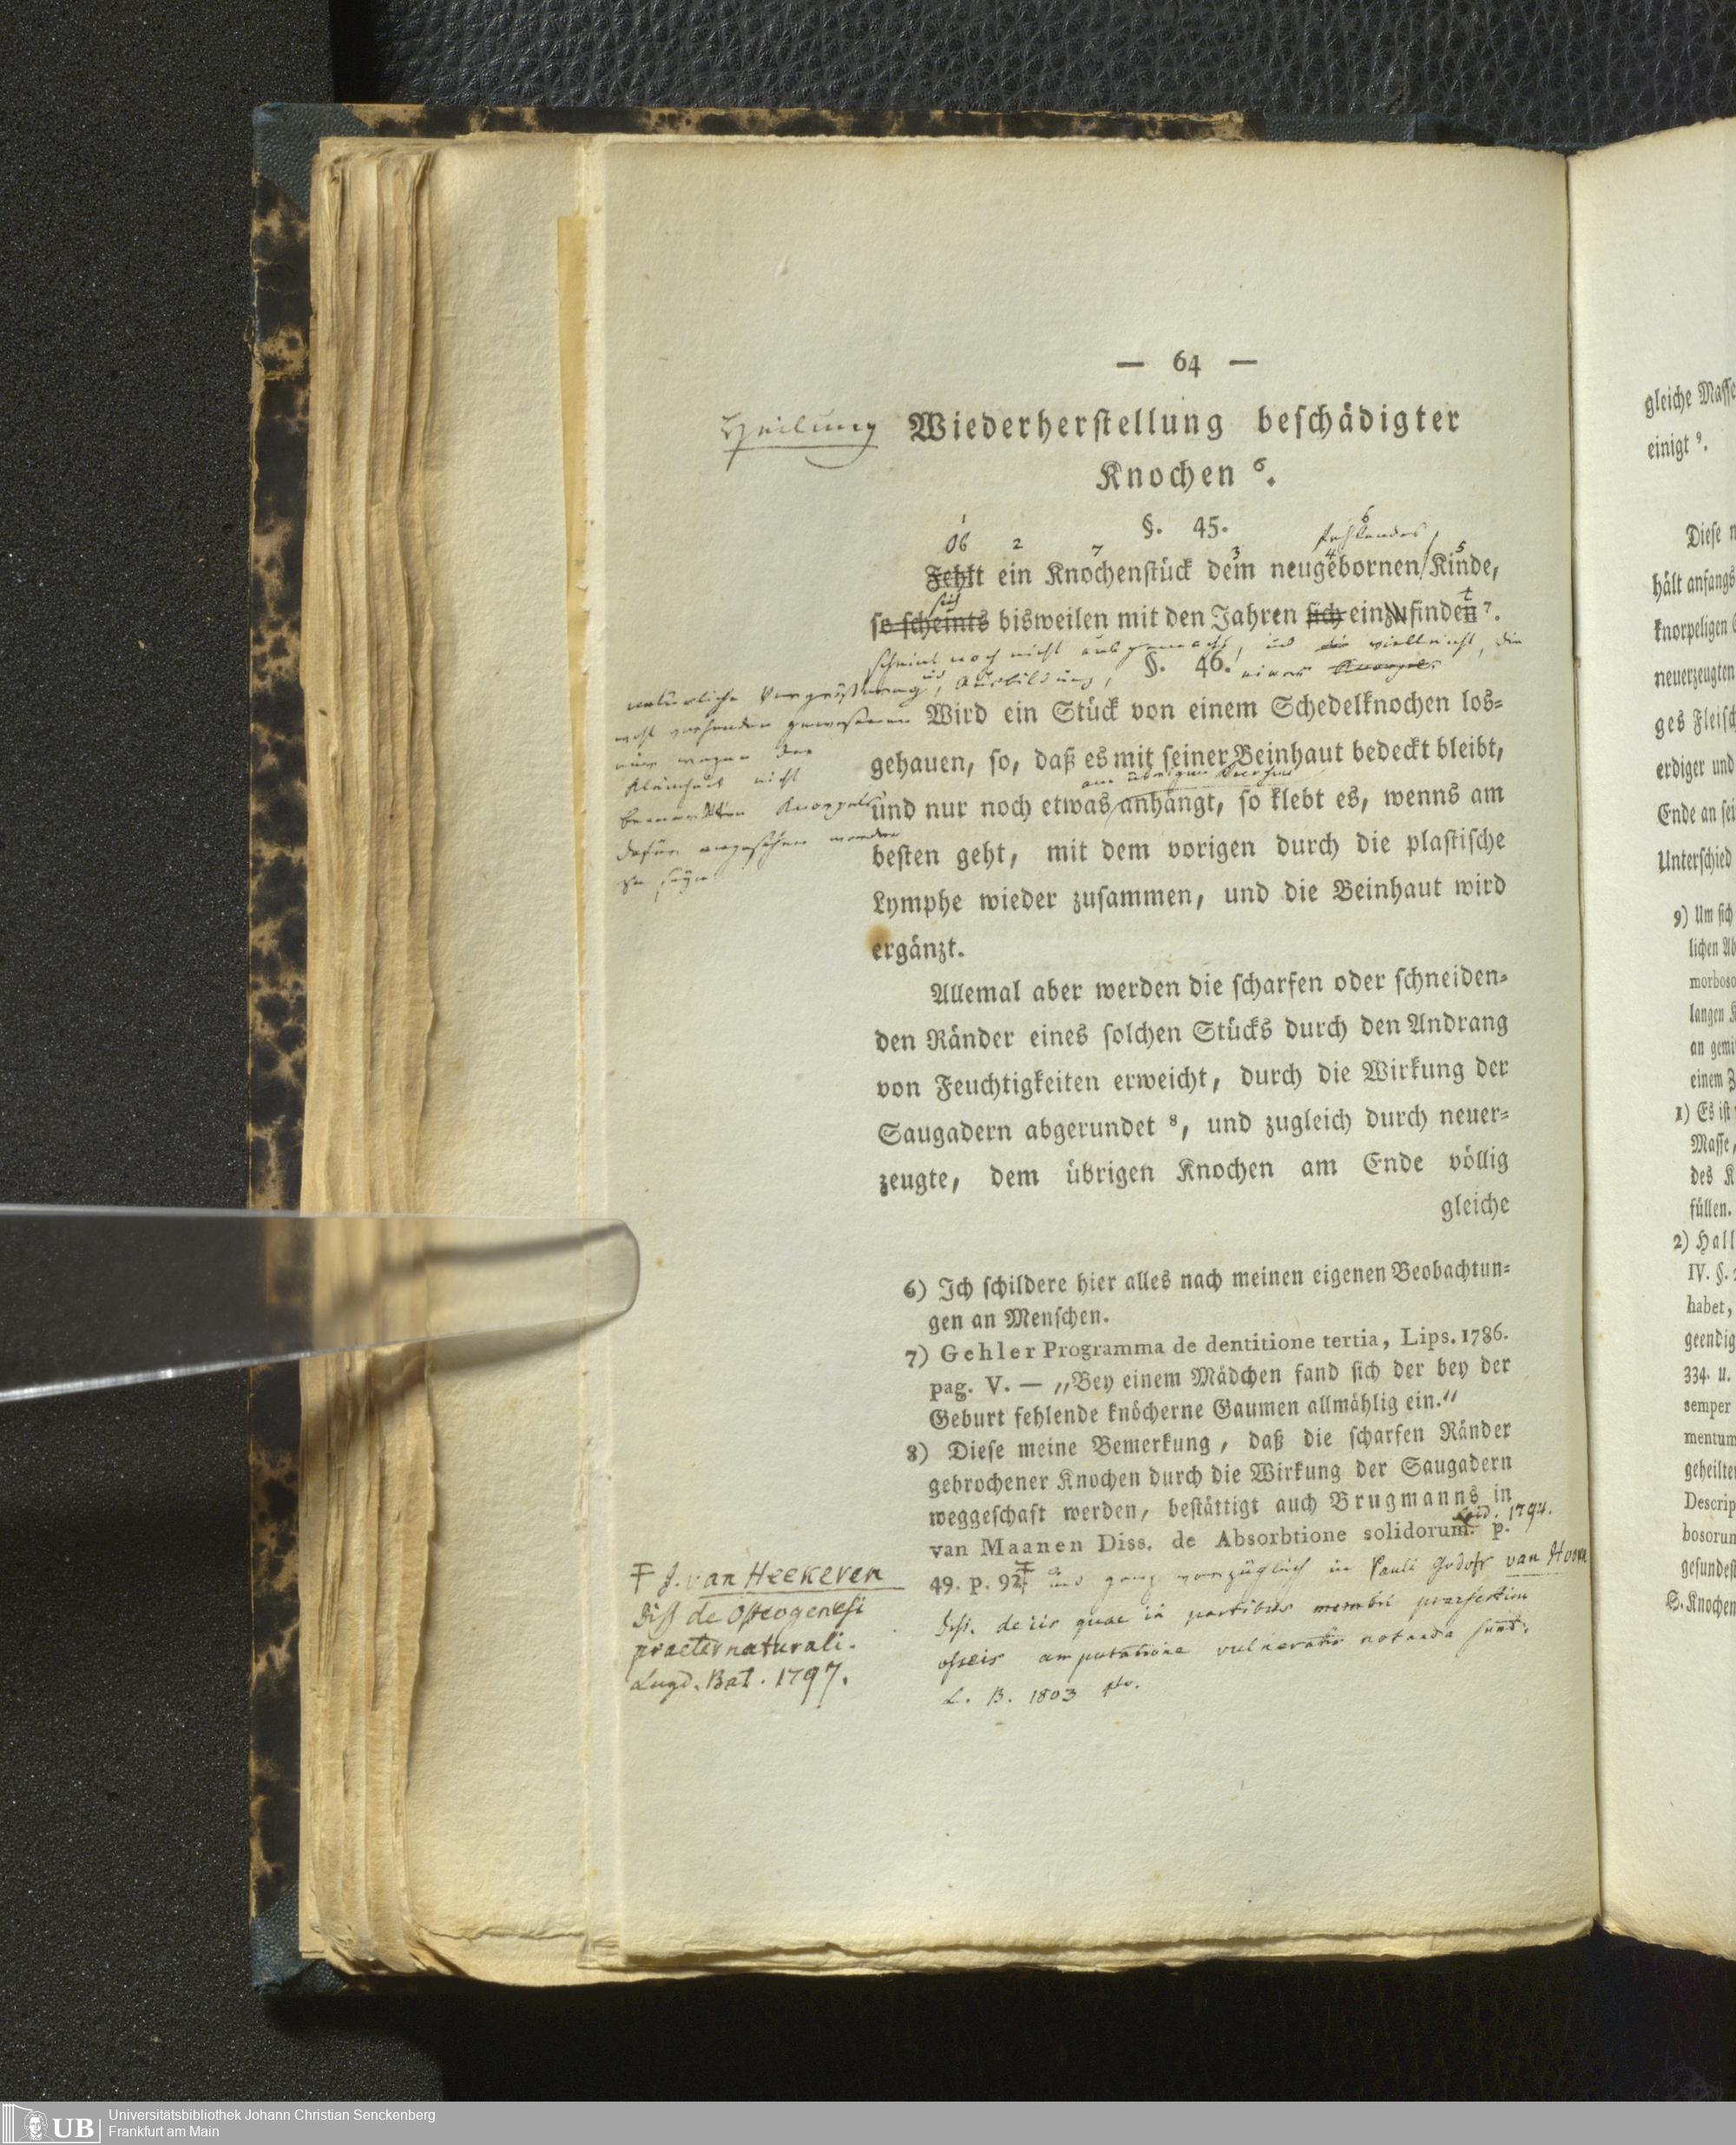 — 64 —
Heilung Wiederherſtellung beſchädigter
Knochen ⁶.
§. 45.
Ob 2 7 3 4 fehlendes 6 5
Fehlt ein Knochenſtück dem neugebornen Kinde,
ſich t
ſo ſcheints bisweilen mit den Jahren ſich einzufinden ⁷.
ſcheint noch nicht ausgemacht, und vielleicht, die
natürliche Vergrößerung und Ausbildung, eines
§. 46.
wohl vorhanden geweſenen
nur wegen der
Kleinheit nicht
bemerkten Knorpels
dafür angeſehen worden
zu ſeyn
Wird ein Stück von einem Schedelknochen los-
gehauen, ſo, daß es mit ſeiner Beinhaut bedeckt bleibt,
am übrigen Knochen
und nur noch etwas anhängt, ſo klebt es, wenns am
beſten geht, mit dem vorigen durch die plaſtiſche
Lymphe wieder zuſammen, und die Beinhaut wird
ergänzt.
Allemal aber werden die ſcharfen oder ſchneiden-
den Ränder eines ſolchen Stücks durch den Andrang
von Feuchtigkeiten erweicht, durch die Wirkung der
Saugadern abgerundet ⁸, und zugleich durch neuer-
zeugte, dem übrigen Knochen am Ende völlig
gleiche
6) Ich ſchildere hier alles nach meinen eigenen Beobachtun-
gen an Menſchen.
7) Gehler Programma de dentitione tertia, Lips. 1786.
pag. V. — „Bey einem Mädchen fand ſich der bey der
Geburt fehlende knöcherne Gaumen allmählig ein.“
8) Dieſe meine Bemerkung, daß die ſcharfen Ränder
gebrochener Knochen durch die Wirkung der Saugadern
weggeſchaft werden, beſtättigt auch Brugmanns in
Leid. 1794.
van Maanen Diss. de Absorbtione solidorum. p.
49. p. 92. und ganz vorzüglich in Pauli Godofr van Hoorn
Diſſ. de iis quae in partibus membri praeſertim
oſſeis amputatione vulneratis notanda ſunt.
L. B. 1803 4to.
Ŧ J. van Heekeren
Diſſ de Oſteogeneſi
praeternaturali.
Lugd. Bat. 1797.
gleiche Maſſe
einigt ⁹.
Dieſe
hält anfangs
knorpeligen
neuerzeugten
ges Fleiſch
erdiger und
Ende an ſei
Unterſchied
9) Um ſich
lichen
morboso
langen
an gemi
einem
1) Es iſt
Maſſe,
des K
füllen.
2) Hall
IV. §.
habet,
geendig
334. u.
semper
mentum
geheilte
Descrip
bosorum
geſundeſt
S. Knochen
UB
Universitätsbibliothek Johann Christian Senckenberg
Frankfurt am Main